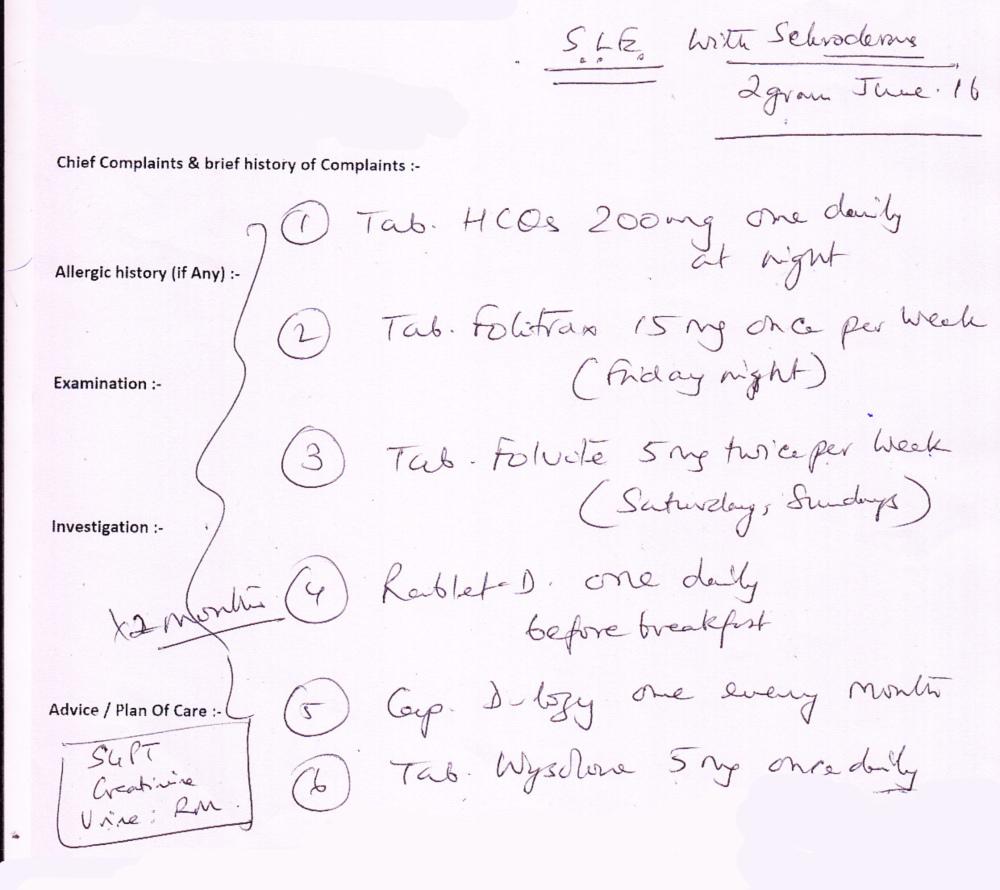 S.L.E. with Scleroderma
2 gram June. 16
Chief Complaints & brief history of Complaints :-
① Tab. HCQs 200mg one daily
at night
Allergic history (if Any) :-
② Tab. Folitrax 15 mg once per week
(Friday night)
Examination :-
③ Tab. Folvite 5 mg twice per week
(Saturday, Sundays)
Investigation :-
④ Rablet-D. one daily
before breakfast
x2 months
⑤ Cap. one every month
Advice / Plan Of Care :-
⑥ Tab. Wysolone 5 mg once daily
SGPT
Creatinine
Urine: RM